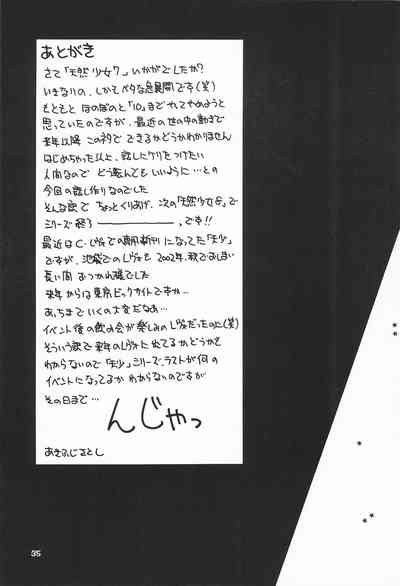 あとがき
さて「天然少女7」いかがでしたか?
いきなりの、しかもベタな急展開です(笑)
もともと ほのぼのと「10」まで やれてやめようと
思っていたのですが、最近の世の中の動きで
来年以降 このネタで できるかどうかわかりません
はじめちゃった以上、話しにケリをつけたい
人間なので どう転んでも いいように…との
今回の話し作りなのでした
そんな訳で ちょっとくりあげ、次の「天然少女8」で
シリーズ終了 ―――――、です!!
最近は C・レヴォでの専用新刊になってた「天少」
ですが、池袋でのレヴォも 2002年秋でおしまい
長い間 おつかれ様でした
来年からは東京ビックサイトですか…
あっちまで いくの大変だなあ…
イベント後の飲み会が楽しみのレヴォだったのに(笑)
そういう訳で来年のレヴォに出てるかどうかも
わからないので「天少」シリーズ、ラストが何の
イベントになってるか わからないのですが
その日まで…
んじゃっ
あきふじさとし
35